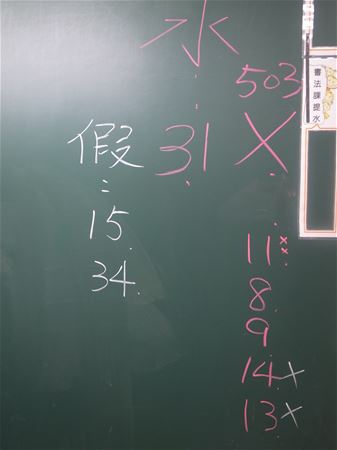 水
:
31
503
X
:
11 ×××
8
9
14 ×
13 ×
假
:
15
34
書法課提水